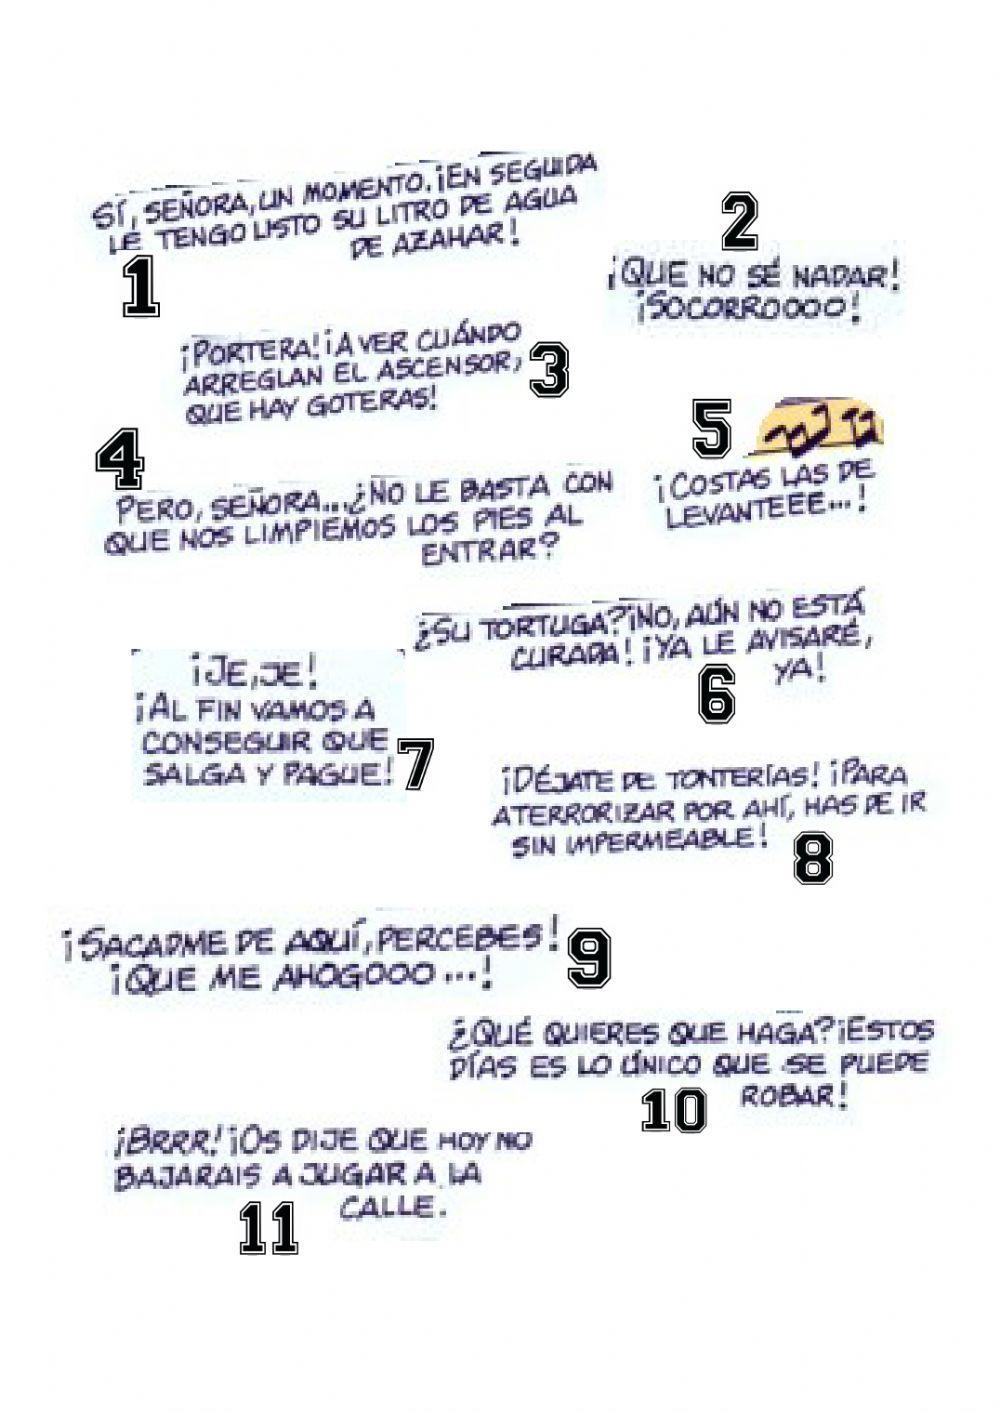 SÍ, SEÑORA, UN MOMENTO. ¡EN SEGUIDA
LE TENGO LISTO SU LITRO DE AGUA
DE AZAHAR!
1
2
¡QUE NO SÉ NADAR!
¡SOCORROOOO!
¡PORTERA! ¡A VER CUÁNDO
ARREGLAN EL ASCENSOR,
QUE HAY GOTERAS!
3
4
PERO, SEÑORA... ¿NO LE BASTA CON
QUE NOS LIMPIEMOS LOS PIES AL
ENTRAR?
5
¡COSTAS LAS DE
LEVANTEEE...!
¿SU TORTUGA? ¡NO, AÚN NO ESTÁ
CURADA! ¡YA LE AVISARÉ,
YA!
6
¡JE, JE!
¡AL FIN VAMOS A
CONSEGUIR QUE
SALGA Y PAGUE!
7
¡DÉJATE DE TONTERÍAS! ¡PARA
ATERRORIZAR POR AHÍ, HAS DE IR
SIN IMPERMEABLE!
8
¡SACADME DE AQUÍ, PERCEBES!
¡QUE ME AHOGOOO...!
9
¿QUÉ QUIERES QUE HAGA? ¡ESTOS
DÍAS ES LO ÚNICO QUE SE PUEDE
ROBAR!
10
¡BRRR! ¡OS DIJE QUE HOY NO
BAJARAIS A JUGAR A LA
CALLE.
11